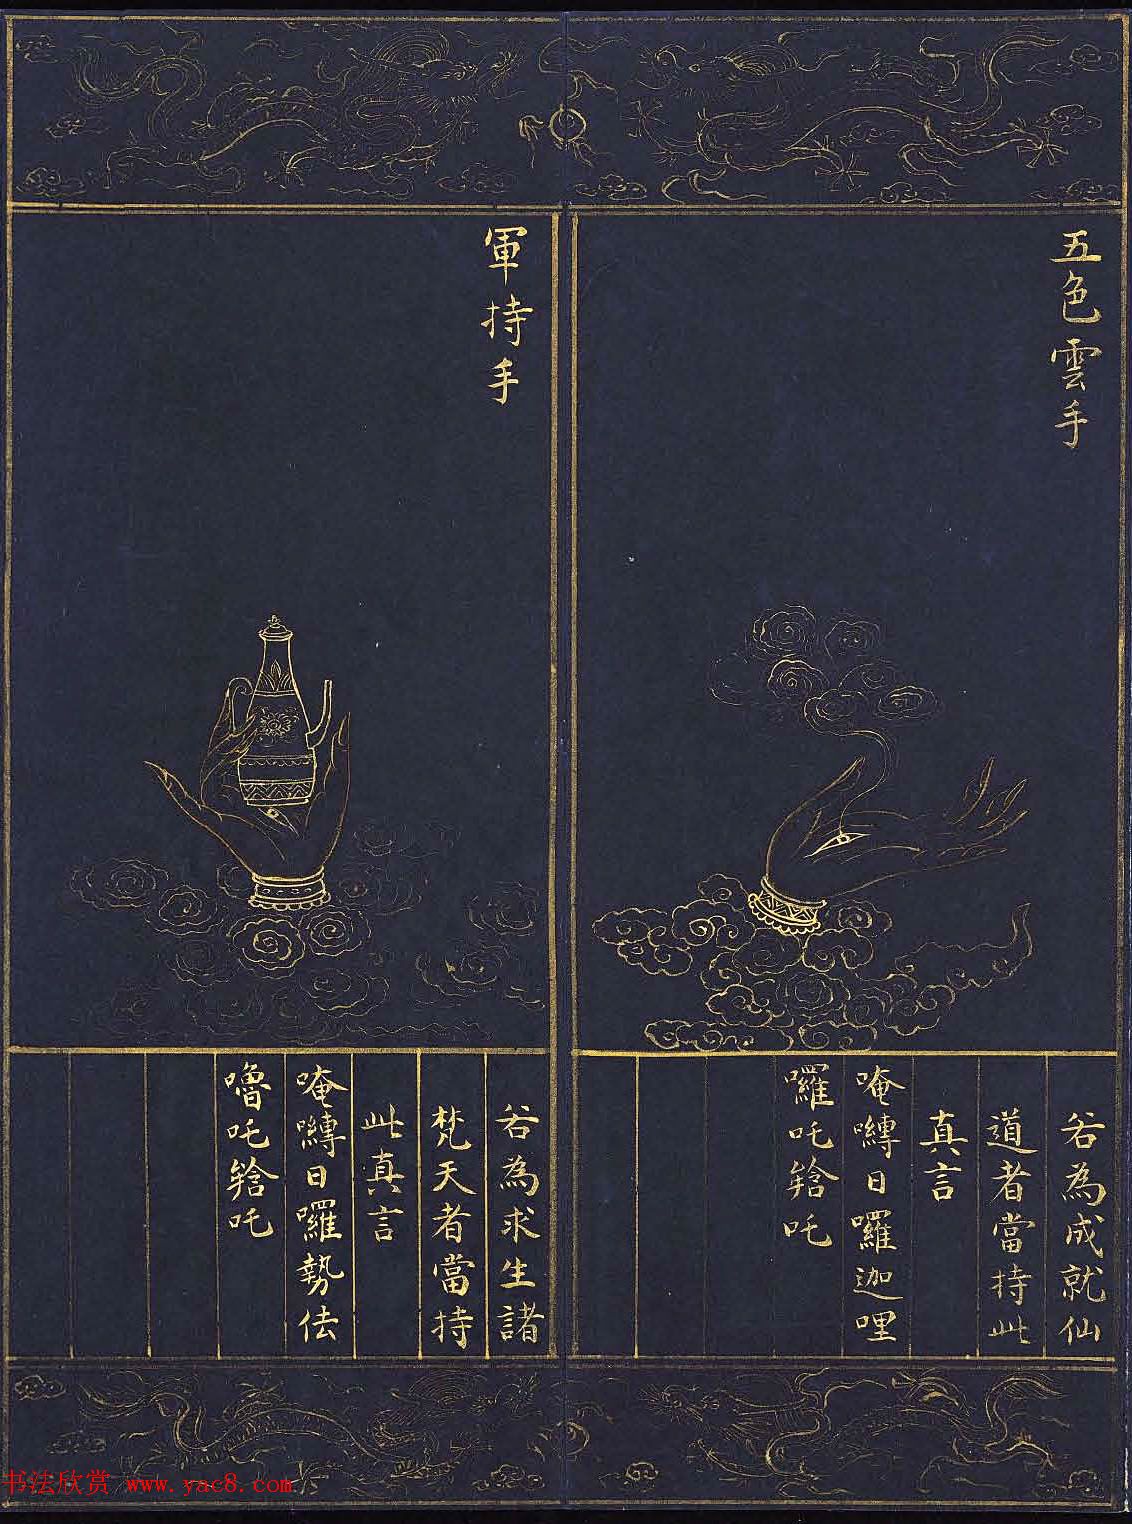 五色雲手
若為成就仙
道者當持此
真言
唵嚩日囉迦哩
囉吒𤙖吒
軍持手
若為求生諸
梵天者當持
此真言
唵嚩日囉勢佉
嚕吒𤙖吒
书法欣赏 www.yac8.com